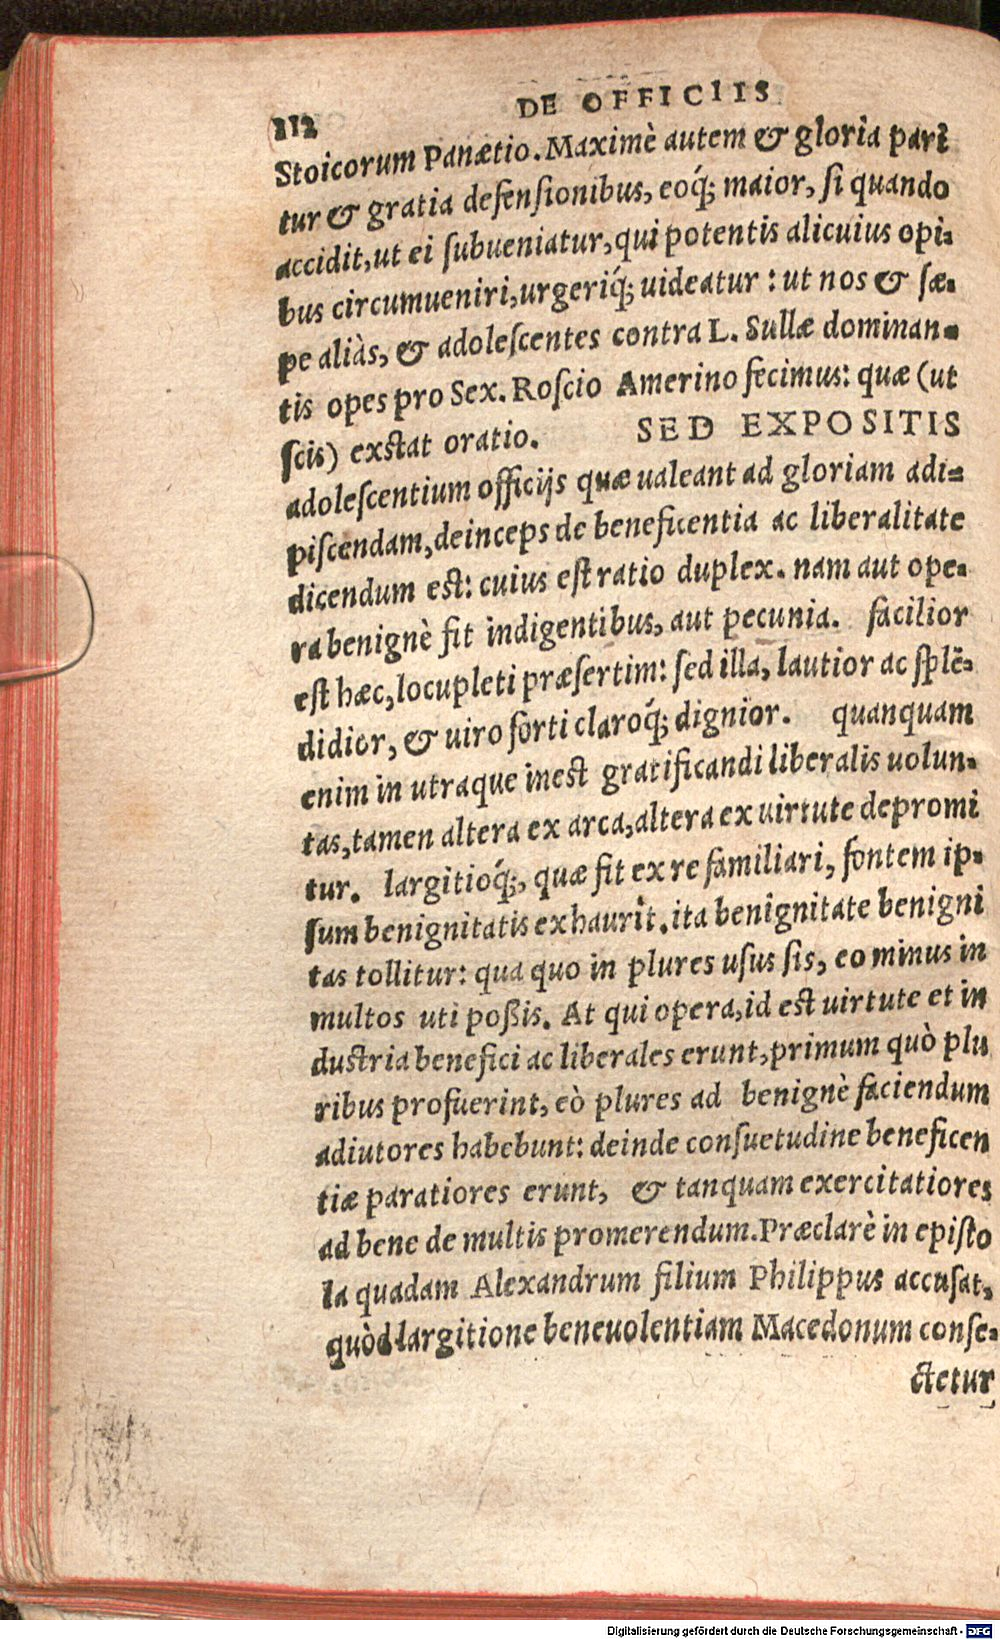 DE OFFICIIS
112
Stoicorum Panætio. Maximè autem & gloria pari
tur & gratia defensionibus, eoq́; maior, si quando
accidit, ut ei subueniatur, qui potentis alicuius opi-
bus circumueniri, urgeriq́; uideatur: ut nos & sæ-
pe aliàs, & adolescentes contra L. Sullæ dominan-
tis opes pro Sex. Roscio Amerino fecimus: quæ (ut
scis) exstat oratio. SED EXPOSITIS
adolescentium officijs quæ ualeant ad gloriam adi-
piscendam, deinceps de beneficentia ac liberalitate
dicendum est: cuius est ratio duplex. nam aut ope-
ra benignè fit indigentibus, aut pecunia. facilior
est hæc, locupleti præsertim: sed illa, lautior ac splē-
didior, & uiro forti claroq́; dignior. quanquam
enim in utraque inest gratificandi liberalis uolun-
tas, tamen altera ex arca, altera ex uirtute depromi
tur. largitioq́;, quæ fit ex re familiari, fontem ip-
sum benignitatis exhaurit. ita benignitate benigni
tas tollitur: qua quo in plures usus sis, eo minus in
multos uti poßis. At qui opera, id est uirtute et in
dustria benefici ac liberales erunt, primum quò plu
ribus profuerint, eò plures ad benignè faciendum
adiutores habebunt: deinde consuetudine beneficen
tiæ paratiores erunt, & tanquam exercitatiores
ad bene de multis promerendum. Præclarè in episto
la quadam Alexandrum filium Philippus accusat,
quòd largitione beneuolentiam Macedonum conse-
ctetur
Digitalisierung gefördert durch die Deutsche Forschungsgemeinschaft - DFG